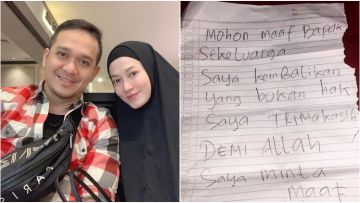 Mohon maaf Bapak
Sekeluarga
Saya kembalikan
yang bukan hak
Saya TRIMAKASIH
DEMI Allah
Saya minta
maaf